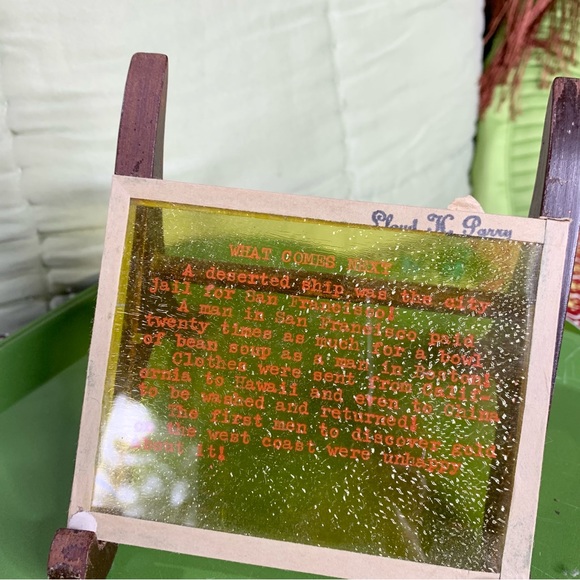 Lloyd K. Parry
WHAT COMES NEXT
A deserted ship was the city
jail for San Francisco!
A man in San Francisco paid
twenty times as much for a bowl
of bean soup as a man in Boston!
Clothes were sent from Calif-
ornia to Hawaii and even to China
to be washed and returned!
The first men to discover gold
on the west coast were unhappy
about it!